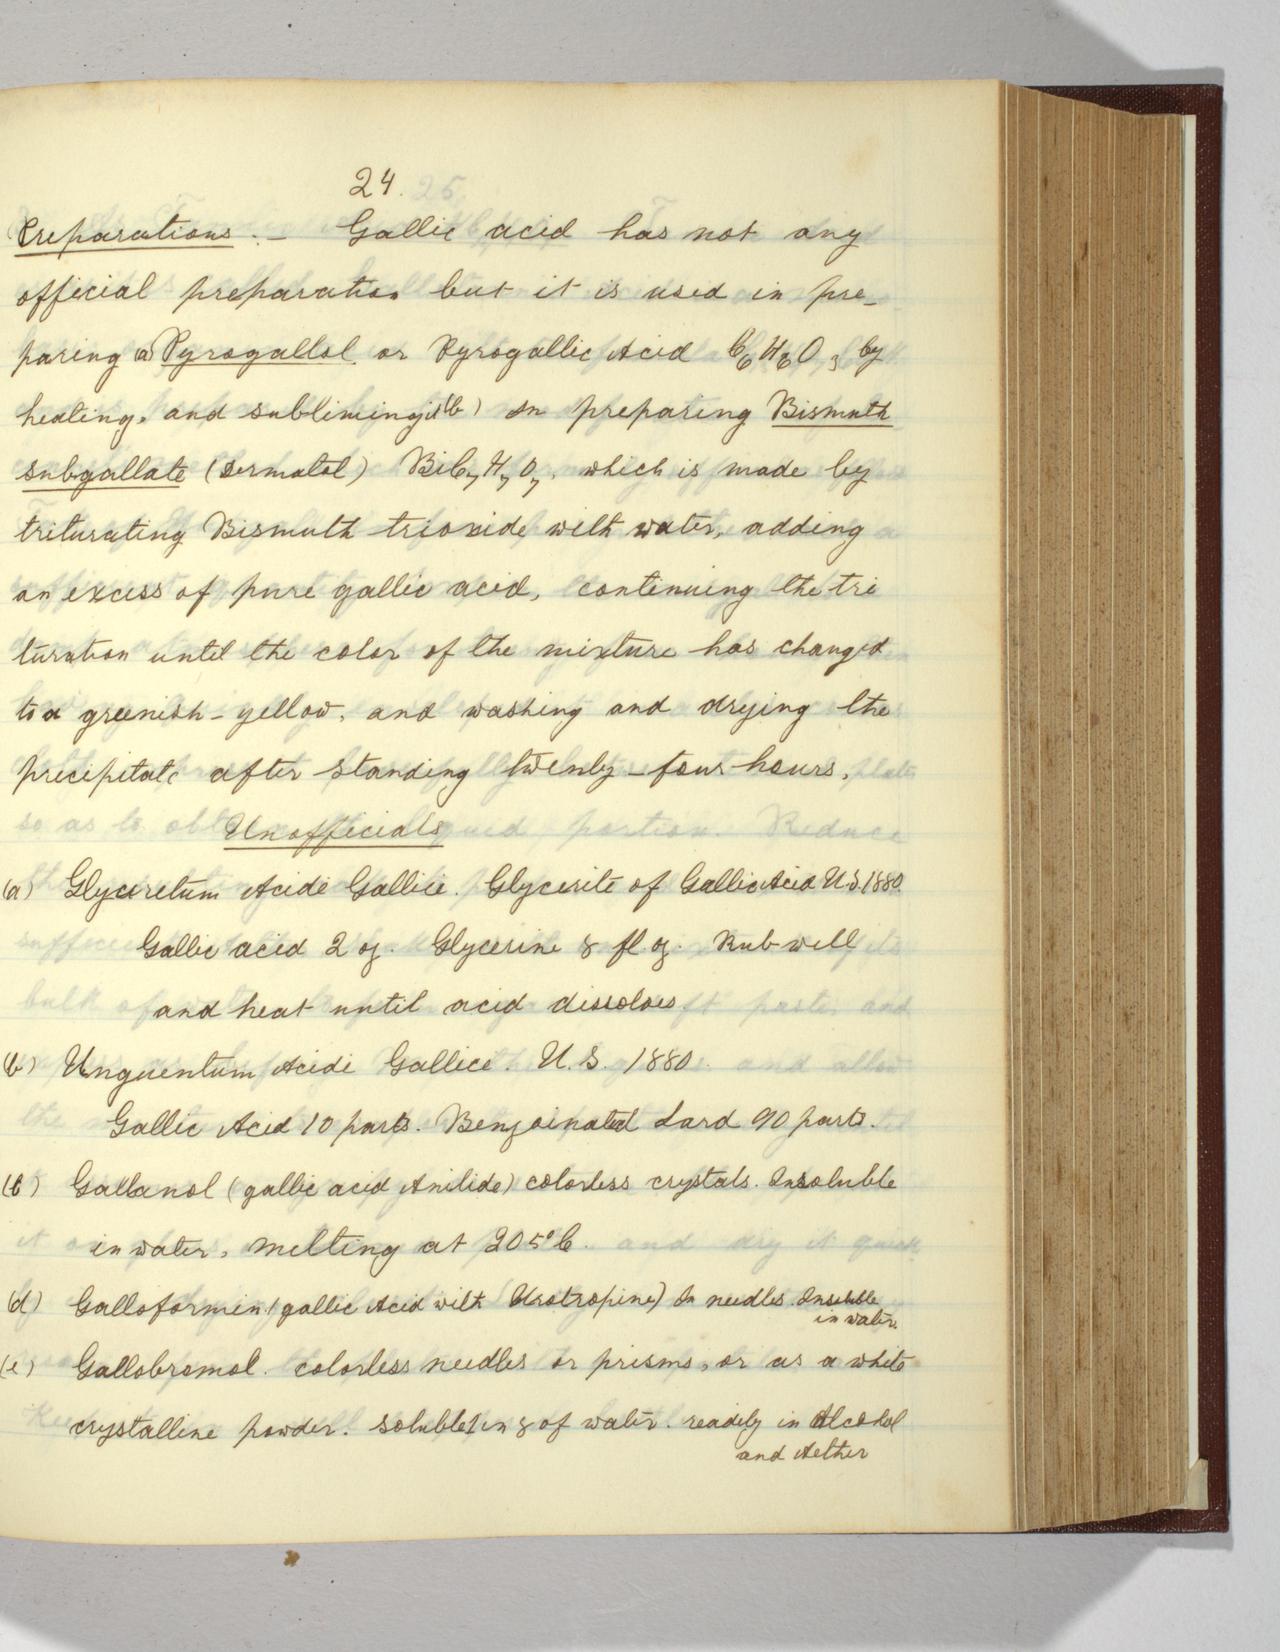 24.
Preparations. — Gallic acid has not any
official preparation but it is used in pre-
paring (a) Pyrogallol or Pyrogallic Acid C6H6O3, by
heating, and subliming; (b) in preparing Bismuth
subgallate (Dermatol) BiC7H7O7, which is made by
triturating Bismuth trioxide with water, adding
an excess of pure gallic acid, continuing the tri
turation until the color of the mixture has changed
to a greenish-yellow, and washing and drying the
precipitate after standing twenty-four hours.
Unofficials
(a) Glyceretum Acidi Gallici. Glycerite of Gallic Acid U.S. 1880.
Gallic acid 2 oz. Glycerine 8 fl oz. Rub well
and heat until acid dissolves
(b) Unguentum Acidi Gallici. U.S. 1880.
Gallic Acid 10 parts. Benzoinated Lard 90 parts.
(c) Gallanol (gallic acid Anilide) colorless crystals. Insoluble
in water, melting at 205°C.
(d) Galloformin (gallic Acid with Urotropine) In needles. Insoluble
in water.
(e) Gallobromol. colorless needles or prisms, or as a white
crystalline powder. soluble 1 in 8 of water. readily in Alcohol
and Aether